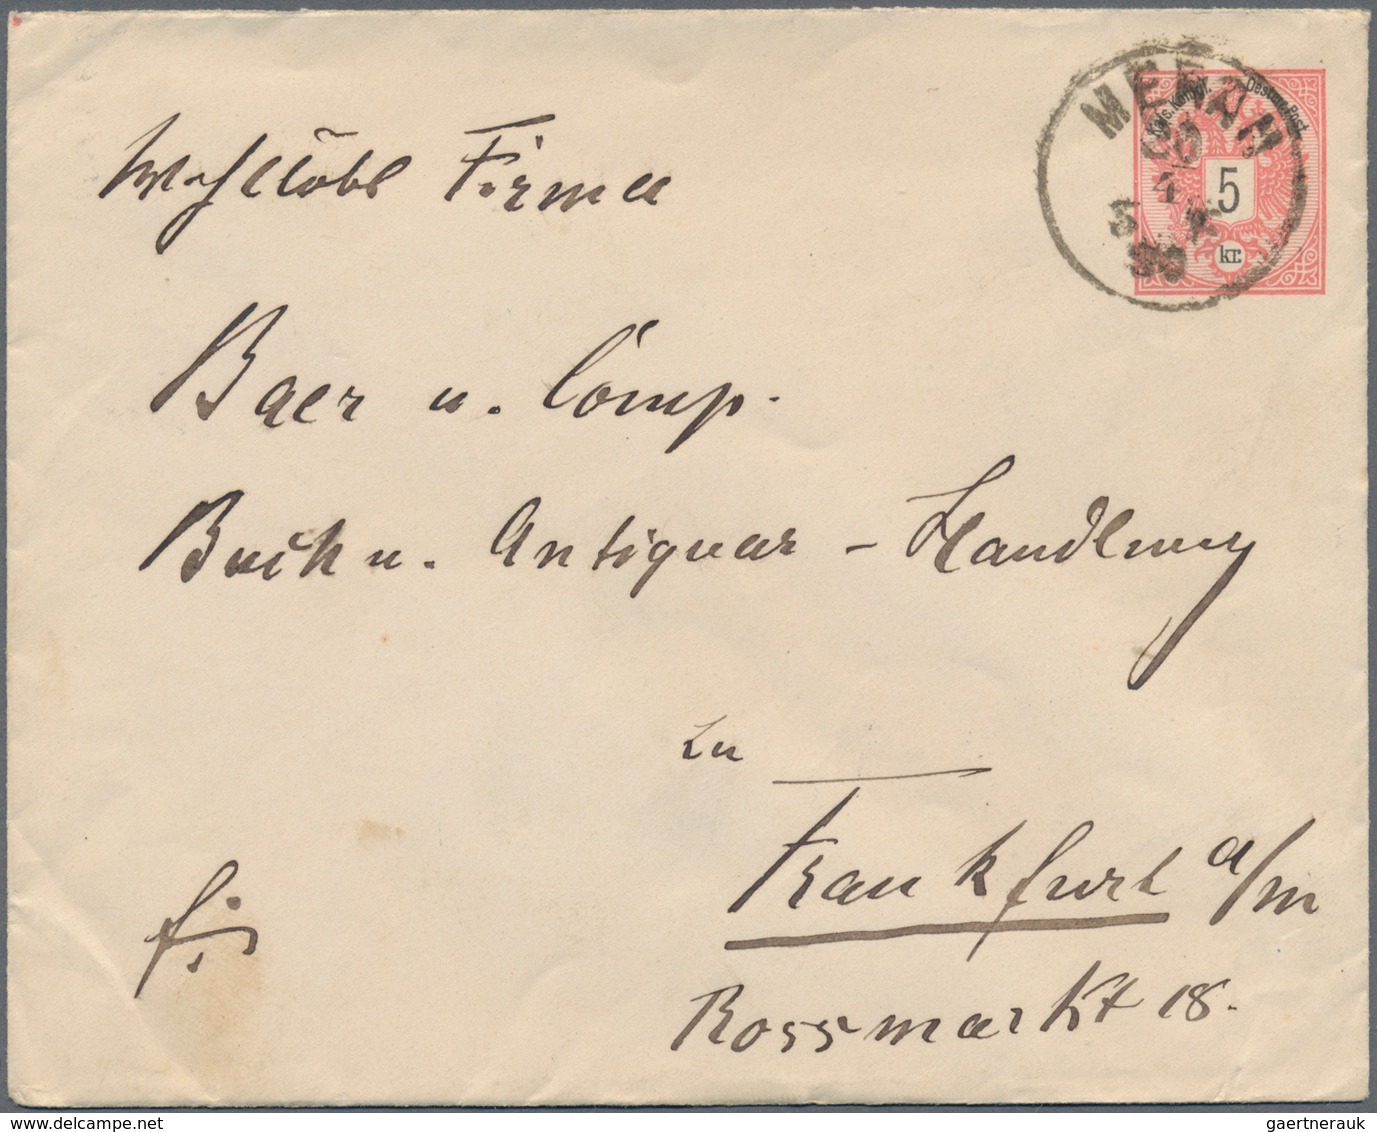 MERAN
Kais. Königl. Oesterr. Post.
5
kr.
Wohllöbl Firma
Baer u. Comp.
Buch u. Antiquar - Handlung
zu
Frankfurt a/m
Rossmarkt 18.
gaertnerauk
www.delcampe.net